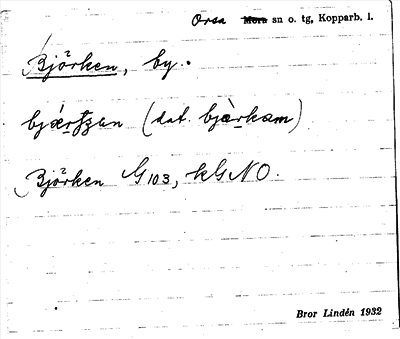 Orsa Mora sn o. tg, Kopparb. l.
Björken, by.
(dat. bjàrkam)
Björken G 103, kGNO.
Bror Lindén 1932